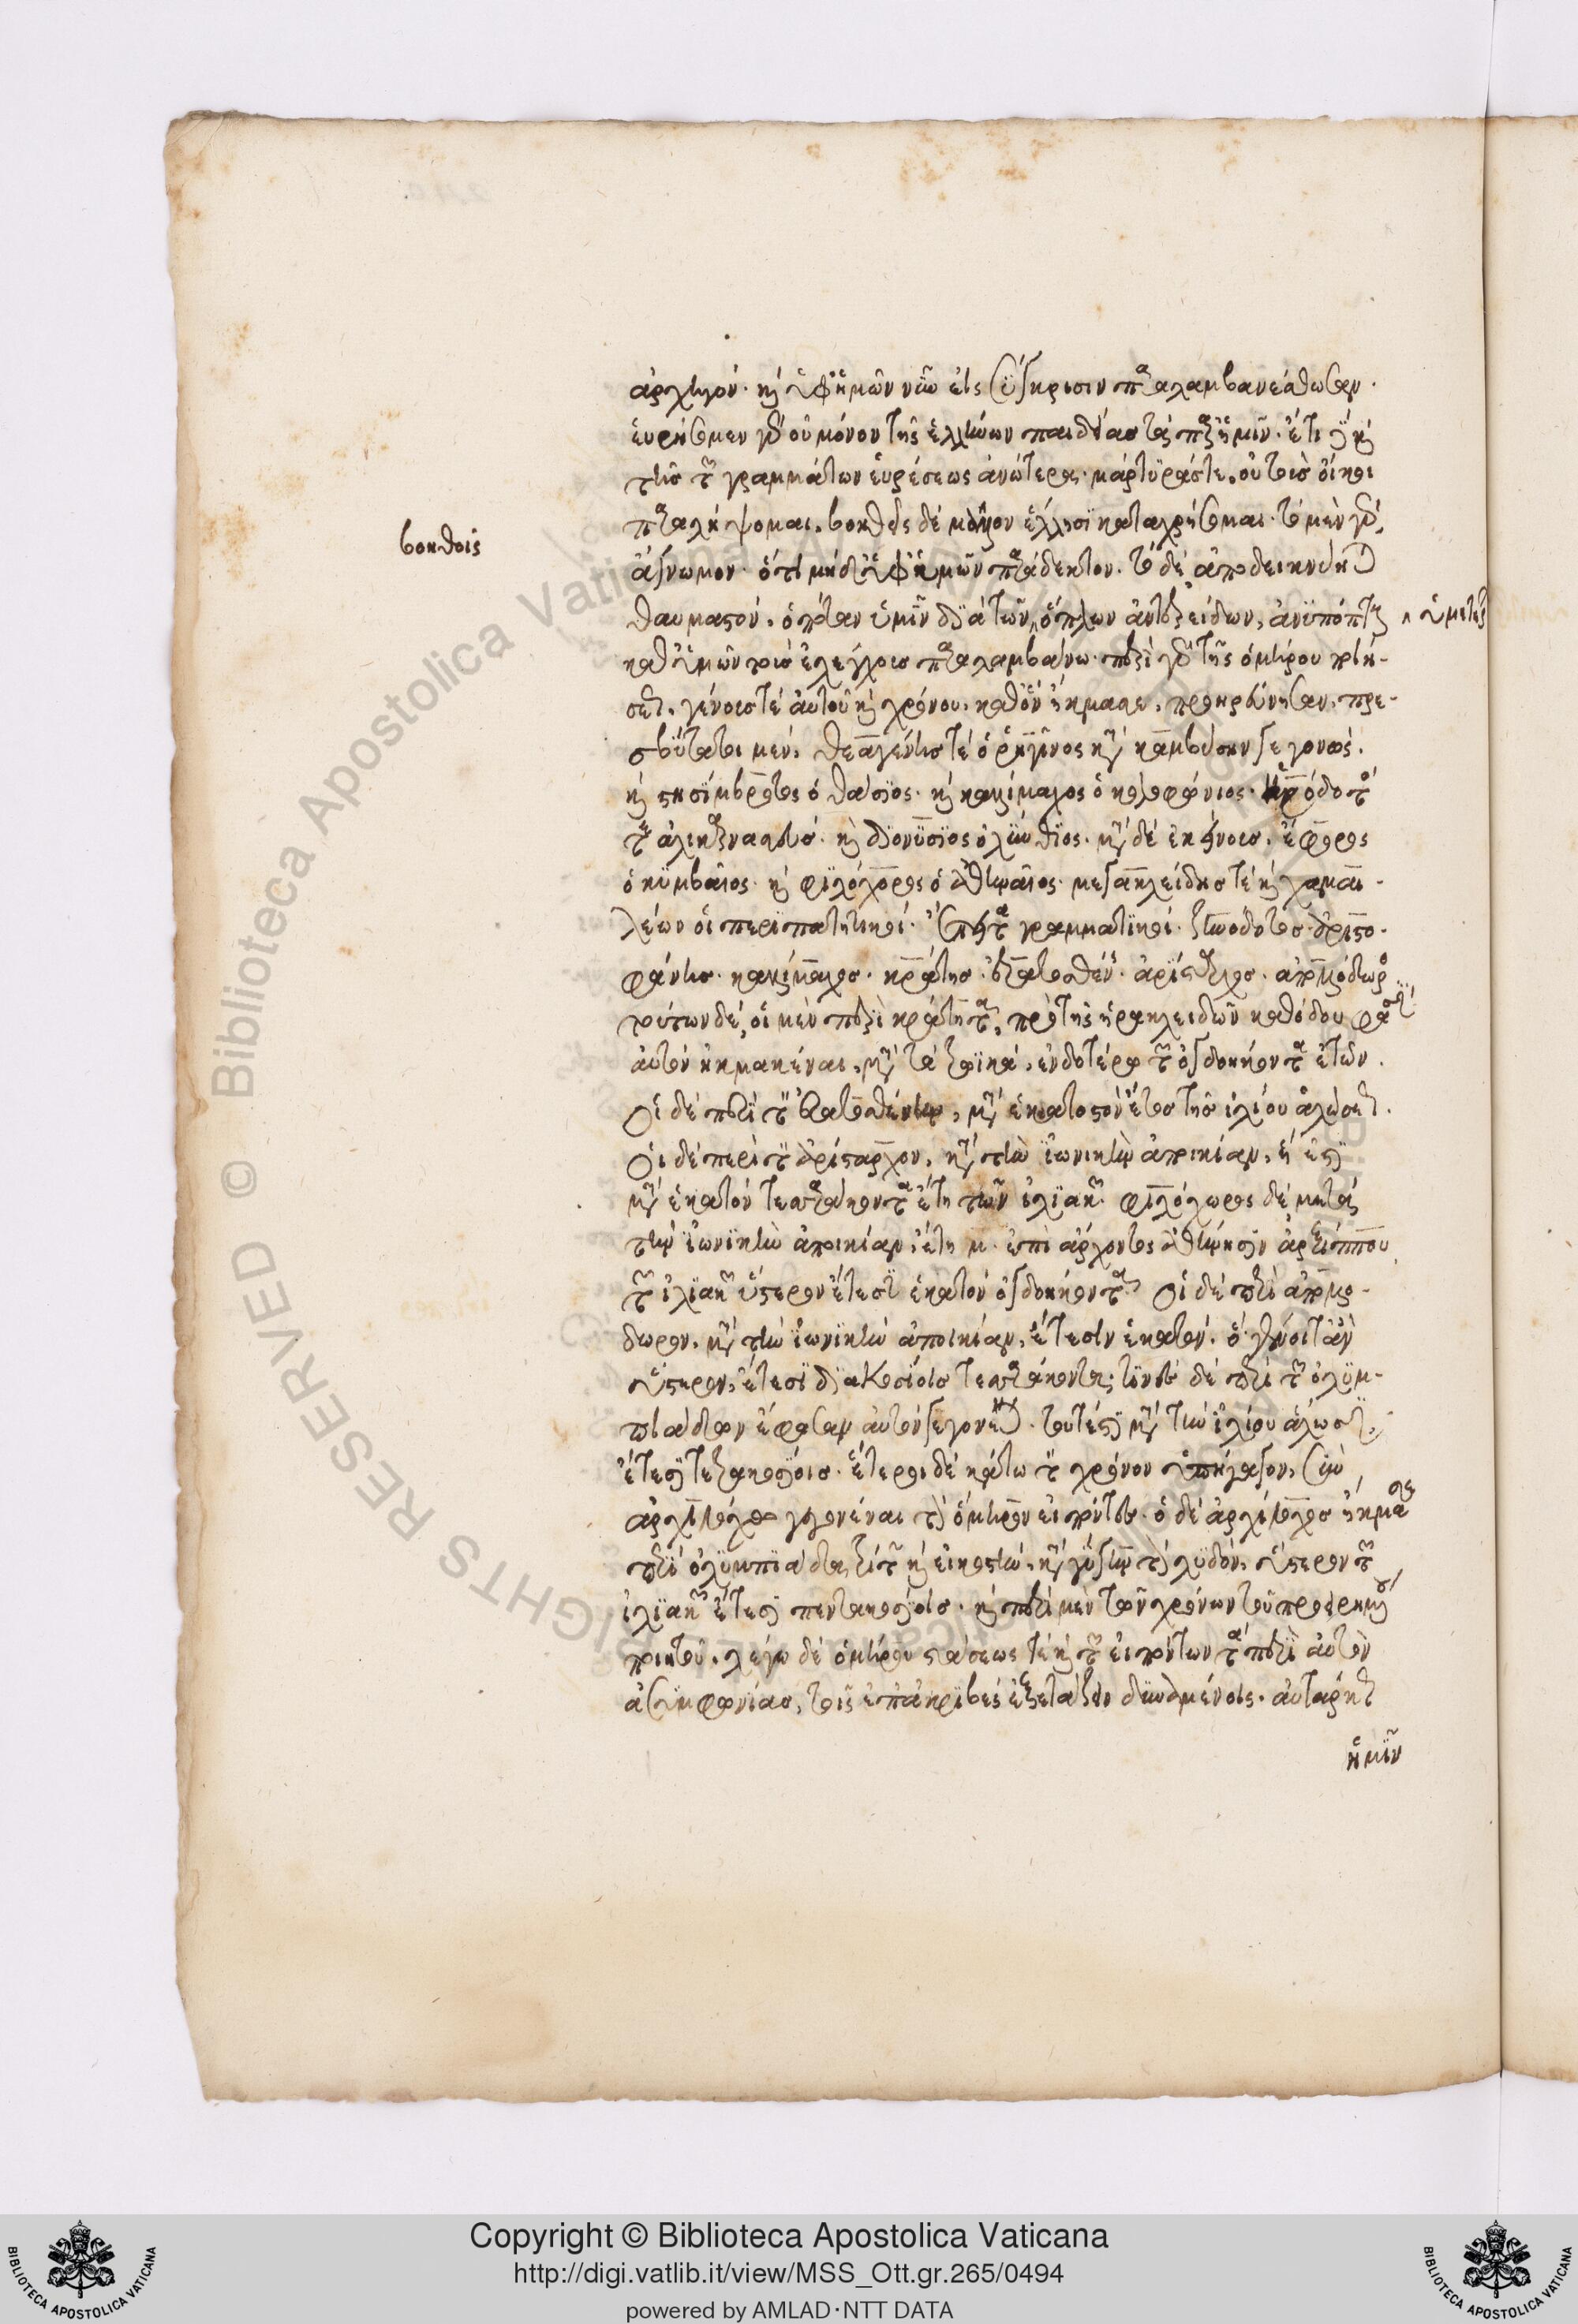 ἀρχηγόν. καὶ ὑφ' ἡμῶν νῦν εἰς σύγκρισιν παραλαμβανέσθωσαν.
εὑρήσομεν γὰρ οὐ μόνον τῆς ἑλλήνων παιδείας τὰ παρ' ἡμῖν. ἔτι δὲ καὶ
τῆς τῶν γραμμάτων εὑρέσεως ἀνώτερα. μάρτυρας δὲ, οὐ τοὺς οἴκοι
παραλήψομαι. βοηθοῖς δὲ μᾶλλον ἕλλησι καταχρήσομαι. τὸ μὲν γὰρ,
βοηθοῖς
ἄγνωμον. ὅτι μηδὲ ὑφ' ἡμῶν παράδεκτον. τὸ δὲ ἀποδεικνύηται
θαυμαστόν. ὁπόταν ὑμῖν διὰ τῶν ὅπλων ἀντερείδων, ἀνυπόπτους
ὑμετέρων
καθ' ὑμῶν τοὺς ἐλέγχους παραλαμβάνω. περὶ γὰρ τῆς ὁμήρου ποιή-
σεως. γένους τὲ αὐτοῦ καὶ χρόνου, καθ' ὃν ἤκμασε, προηρεύνησαν. πρε-
σβύτατοι μὲν, θεαγένης τὲ ὁ ῥηγῖνος κατὰ καμβύσην γεγονώς.
καὶ στησίμβροτος ὁ θάσιος. καὶ καλλίμαχος ὁ κολοφώνιος. ἡρόδοτος
τὲ ἁλικαρνασσεύς. καὶ διονύσιος ὀλύνθιος. μετὰ δὲ ἐκείνους. ἔφορος
ὁ κυμβαῖος. καὶ φιλόχορος ὁ ἀθηναῖος. μεγακλείδης τὲ καὶ χαμαι-
λέων οἱ περιπατητικοί. ἔπειτα γραμματικοί. ζηνόδοτος. ἀριστο-
φάνης. καλλίμαχος. κράτης. ἐρατοσθένης. ἀρίσταρχος. ἀπολλόδωρος.
τούτων δὲ, οἱ μὲν περὶ κράτητα, πρὸ τῆς ἡρακλειδῶν καθόδου φασὶ
αὐτὸν ἠκμακέναι, μετὰ τὰ τρωϊκὰ, ἐνδοτέρω τῶν ὀγδοήκοντα ἐτῶν.
Οἱ δὲ περὶ τὸν ἐρατοσθένην, μετὰ ἑκατοστὸν ἔτος τῆς ἰλίου ἁλώσεως.
Οἱ δὲ περὶ τὸν ἀρίσταρχον, κατὰ τὴν ἰωνικὴν ἀποικίαν, ἥ ἐστι
μετὰ ἑκατὸν τεσσαράκοντα ἔτη τῶν ἰλιακῶν. φιλόχορος δὲ μετὰ
τὴν ἰωνικὴν ἀποικίαν, ἔτη μ. ἐπὶ ἄρχοντος ἀθήνησιν ἀρχίππου
τῶν ἰλιακῶν ὕστερον ἔτεσι ἑκατὸν ὀγδοήκοντα. Οἱ δὲ περὶ ἀπολλό-
δωρον, μετὰ τὴν ἰωνικὴν ἀποικίαν, ἔτεσιν ἑκατόν. ὃ γένοιτ' ἂν
ὕστερον, ἔτεσι διακοσίοις τεσσαράκοντα. τινὲς δὲ περὶ τῶν ὀλυμ-
πιάδων ἔφασαν αὐτὸν γεγονέναι. τουτέστι μετὰ τὴν ἰλίου ἅλωσιν,
ἔτεσι τετρακοσίοις. ἕτεροι δὲ κάτω τὸν χρόνον ὑπήγαγον, σὺν
ἀρχιλόχῳ γεγονέναι τὸν ὅμηρον εἰπόντες. ὁ δὲ ἀρχίλοχος ἤκμασε
περὶ ὀλυμπιάδα τρίτην καὶ εἰκοστὴν, κατὰ γύγην τὸν λυδὸν, ὕστερον τῶν
ἰλιακῶν ἔτεσι πεντακοσίοις. καὶ περὶ μὲν τῶν χρόνων τοῦ προειρημένου
ποιητοῦ, λέγω δὲ ὁμήρου στάσεως τὲ καὶ τῶν εἰπόντων τὰ περὶ αὐτὸν
ἀσυμφωνίας, τοῖς ἐπ' ἀκριβὲς ἐξετάζειν δυναμένοις. αὐτάρκως
ἡμῖν
Copyright © Biblioteca Apostolica Vaticana
http://digi.vatlib.it/view/MSS_Ott.gr.265/0494
powered by AMLAD·NTT DATA
BIBLIOTECA APOSTOLICA VATICANA
BIBLIOTECA APOSTOLICA VATICANA